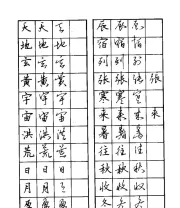 天 天 天
地 地 地
玄 玄 玄
黄 黄 黄
宇 宇 宇
宙 宙 宙
洪 洪 洪
荒 荒 荒
日 日 日
月 月 月
辰 辰 辰
宿 宿 宿
列 列 列
张 张 张 张
寒 寒 寒
来 来 来 来
暑 暑 暑
往 往 往
秋 秋 秋
收 收 收
冬 冬 冬